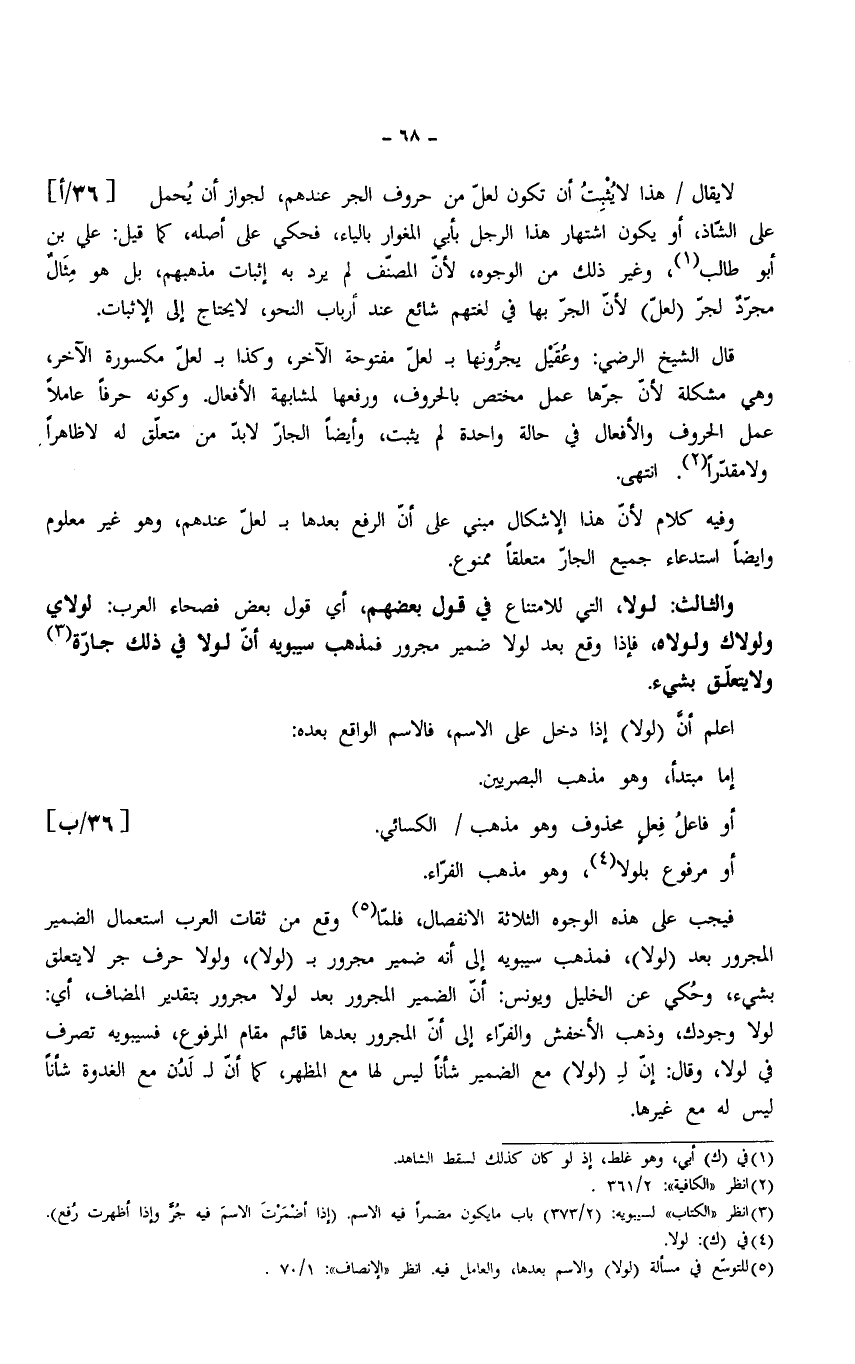 ـ ٦٨ ـ
لايقال / هذا لايُثْبِتُ أن تكون لعلّ من حروف الجر عندهم، لجواز أن يُحمل [٣٦/أ]
على الشّاذ، أو يكون اشتهار هذا الرجل بأبي المغوار بالياء، فحكي على أصله، كما قيل: علي بن
أبو طالب(١)، وغير ذلك من الوجوه، لأنّ المصنّف لم يرد به إثبات مذهبهم، بل هو مِثَالٌ
مجرّدٌ لجرّ (لعلّ) لأنّ الجرّ بها في لغتهم شائع عند أرباب النحو، لايحتاج إلى الإثبات.
قال الشيخ الرضي: وعُقَيْل يجرُّونها بـ لعلّ مفتوحة الآخر، وكذا بـ لعلّ مكسورة الآخر،
وهي مشكلة لأنّ جرّها عمل مختص بالحروف، ورفعها لمشابهة الأفعال. وكونه حرفاً عاملاً
عمل الحروف والأفعال في حالة واحدة لم يثبت، وأيضاً الجارّ لابدّ من متعلّق له لاظاهراً
ولامقدّراً(٢). انتهى.
وفيه كلام لأنّ هذا الإشكال مبني على أنّ الرفع بعدها بـ لعلّ عندهم، وهو غير معلوم
وايضاً استدعاء جميع الجارّ متعلقاً ممنوع.
والثالث: لولا، التي للامتناع في قول بعضهم، أي قول بعض فصحاء العرب: لولاي
ولولاك ولولاه، فإذا وقع بعد لولا ضمير مجرور فمذهب سيبويه أنّ لولا في ذلك جارّة(٣)
ولايتعلّق بشيء.
اعلم أنَّ (لولا) إذا دخل على الاسم، فالاسم الواقع بعده:
إما مبتدأ، وهو مذهب البصريين.
أو فاعلُ فِعلٍ محذوف وهو مذهب / الكسائي. [٣٦/ب]
أو مرفوع بلولا(٤)، وهو مذهب الفرّاء.
فيجب على هذه الوجوه الثلاثة الانفصال، فلمّا(٥) وقع من ثقات العرب استعمال الضمير
المجرور بعد (لولا)، فمذهب سيبويه إلى أنه ضمير مجرور بـ (لولا)، ولولا حرف جر لايتعلق
بشيء، وحُكي عن الخليل ويونس: أنّ الضمير المجرور بعد لولا مجرور بتقدير المضاف، أي:
لولا وجودك، وذهب الأخفش والفرّاء إلى أنّ المجرور بعدها قائم مقام المرفوع، فسيبويه تصرف
في لولا، وقال: إنّ لـِ (لولا) مع الضمير شأناً ليس لها مع المظهر، كما أنّ لـ لَدُن مع الغدوة شأناً
ليس له مع غيرها.
(١)في (ك) أبي، وهو غلط، إذ لو كان كذلك لسقط الشاهد.
(٢)انظر «الكافية»: ٣٦١/٢ .
(٣)انظر «الكتاب» لسيبويه: (٣٧٣/٢) باب مايكون مضمراً فيه الاسم. (إذا أضْمَرْتَ الاسمَ فيه جُرَّ وإذا أظهرت رُفع).
(٤)في (ك): لولا.
(٥)للتوسّع في مسألة (لولا) والاسم بعدها، والعامل فيه. انظر «الإنصاف»: ٧٠/١ .